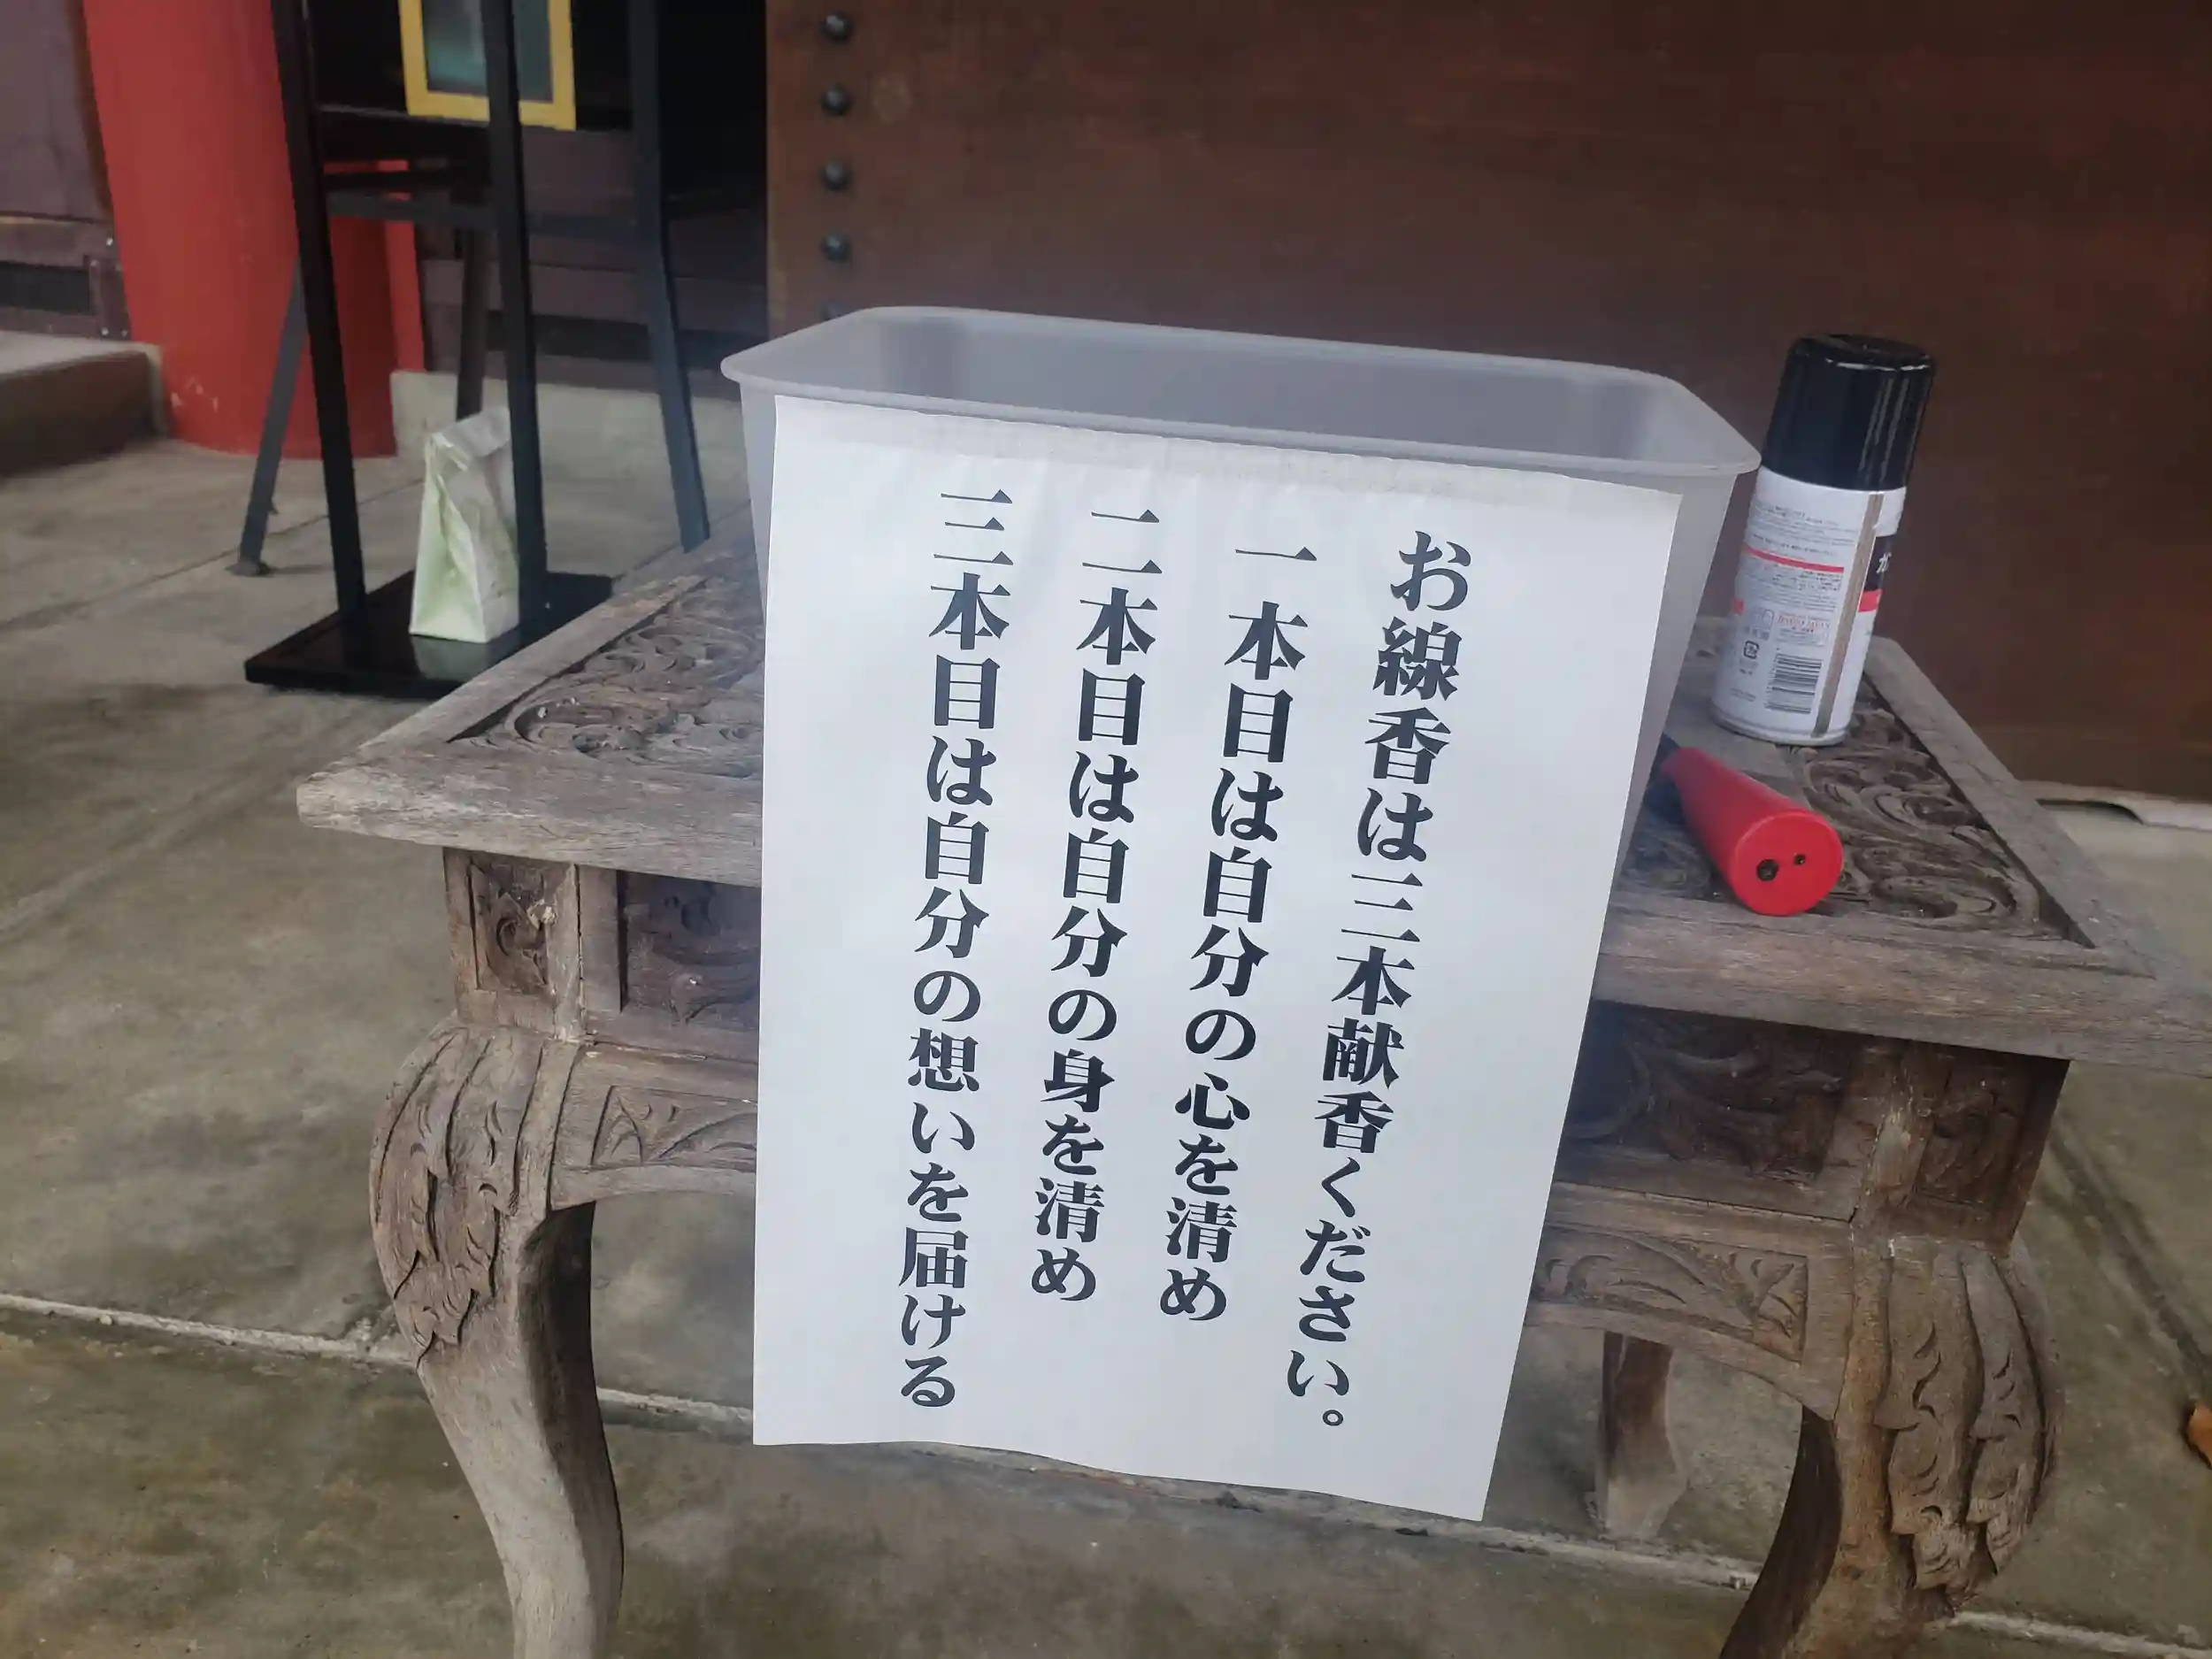 お線香は三本献香ください。
一本目は自分の心を清め
二本目は自分の身を清め
三本目は自分の想いを届ける